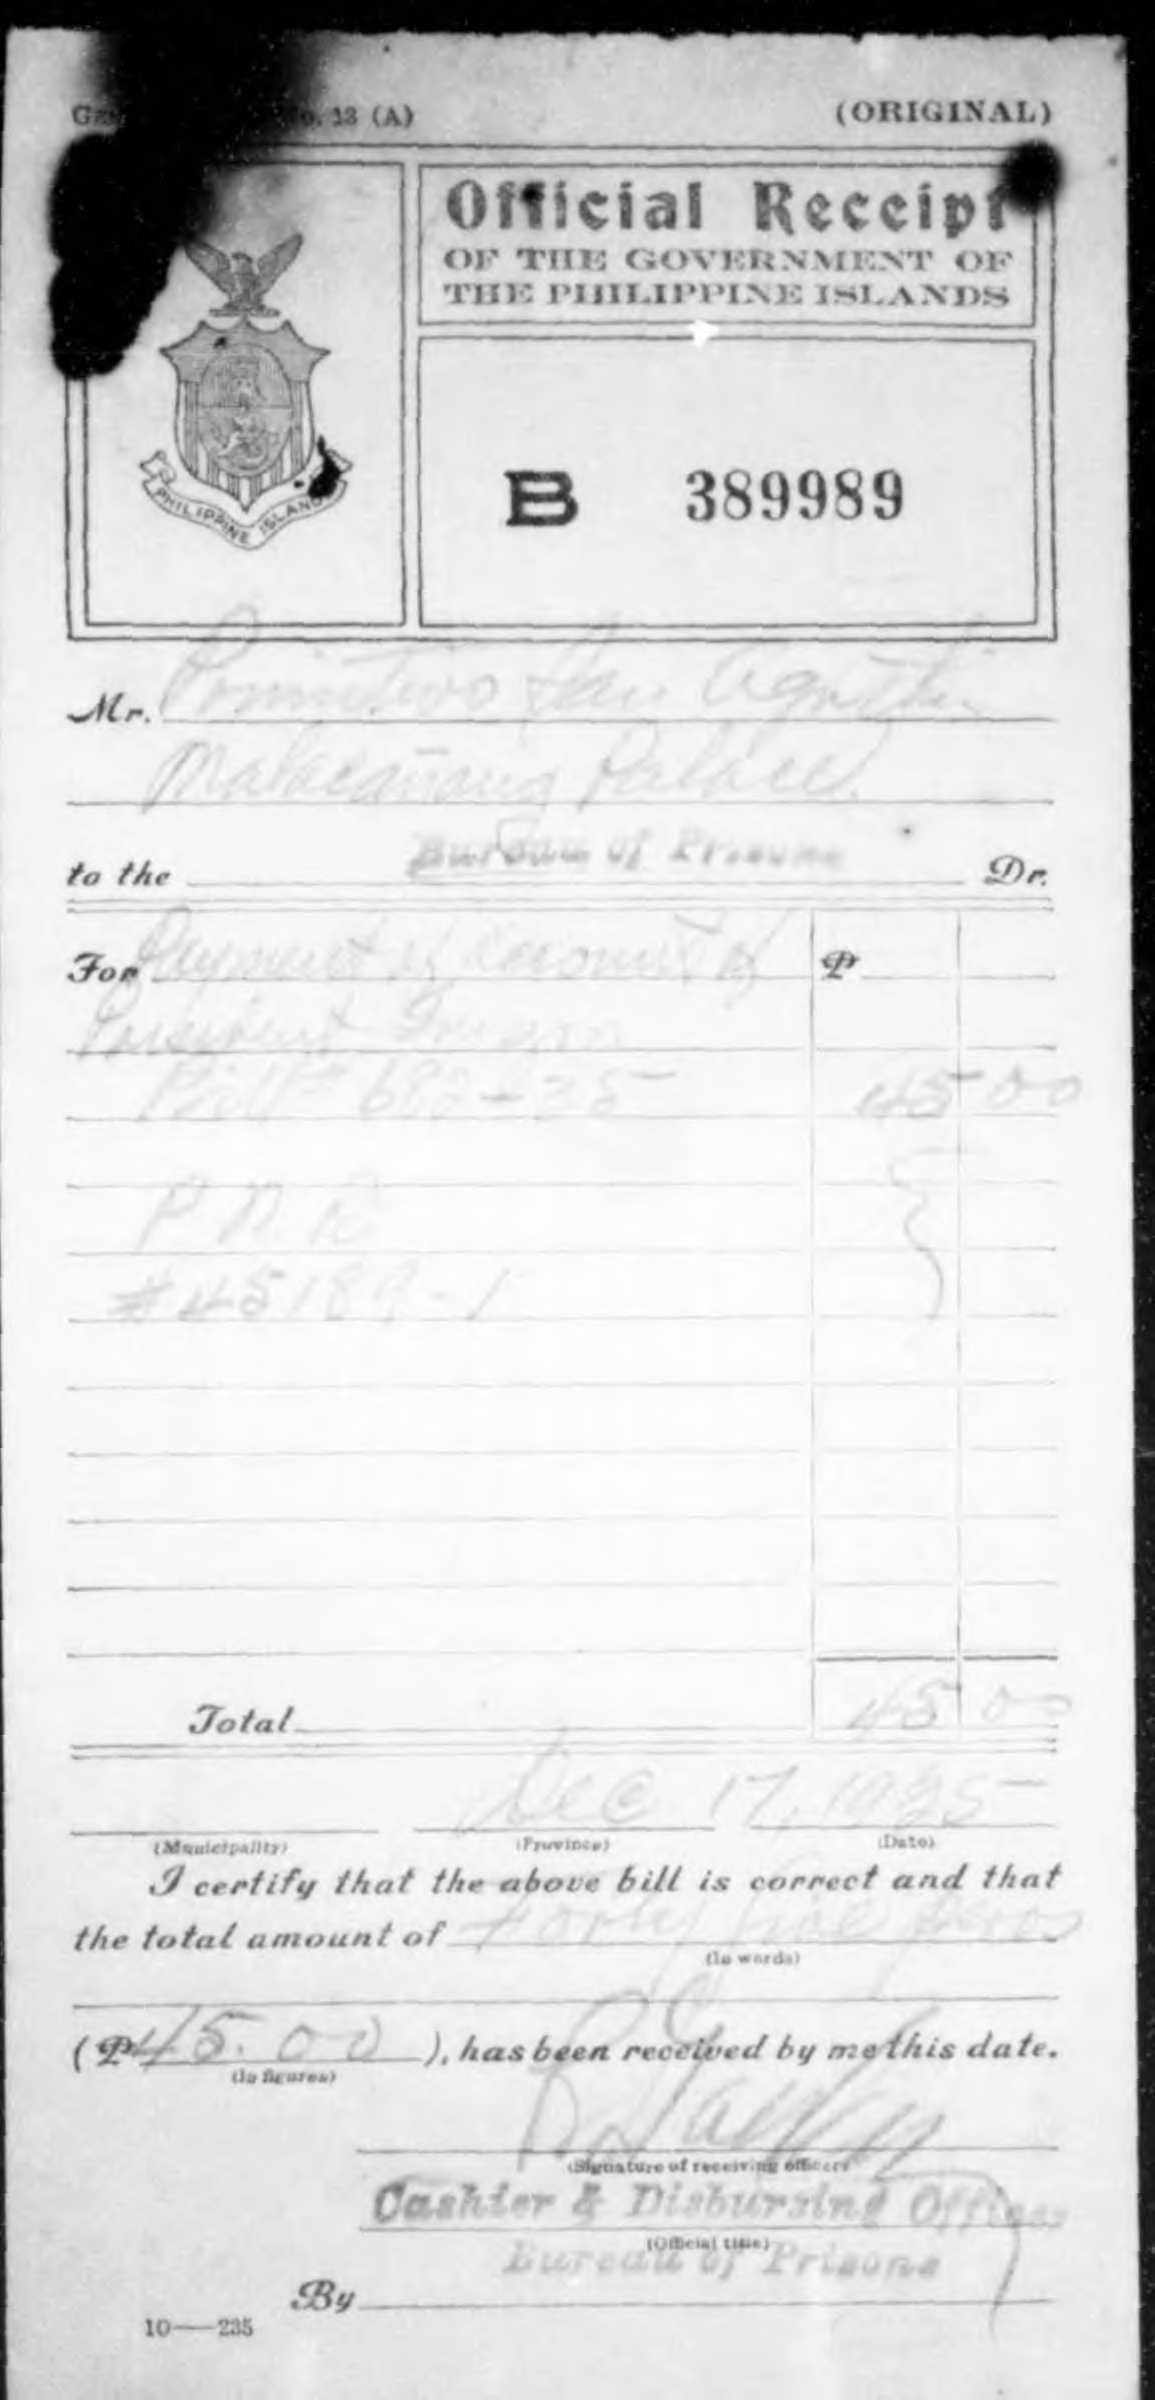 13 (A) (ORIGINAL)
Official Receipt
OF THE GOVERNMENT OF
THE PHILIPPINE ISLANDS
PHILIPPINE ISLANDS
B 389989
Mr. Primitivo San Agustin
Malacañang Palace
to the Bureau of Prisons Dr.
For Payment of account of ₱
President
Bill # 682-35 45 00
P.N.B.
Total 45 00
Dec 17, 1935
(Municipality) (Province) (Date)
I certify that the above bill is correct and that
the total amount of Forty five pesos
(In words)
(₱ 45.00 ), has been received by me this date.
(In figures)
(Signature of receiving officer)
Cashier & Disbursing Officer
(Official title)
Bureau of Prisons
By
10—235